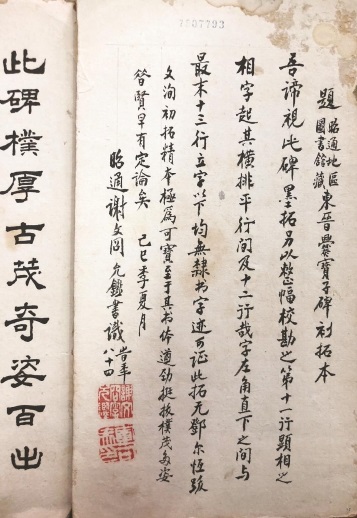 題昭通地區圖書館藏東晉爨寶子碑初拓本
吾諦視此碑墨拓另以整幅校勘之第十一行顯相之
相字起其橫排平行間及十二行哉字左角直下之間與
最末十三行立字以下均無隸书字迹可证此拓无鄧尔恆跋
文洵初拓精本極爲可寶至于其书体遒劲挺拔樸茂多姿
昝賢早有定論矣 己巳季夏月
昭通謝文岡允鑑書識 时年八十四
此碑樸厚古茂奇姿百出